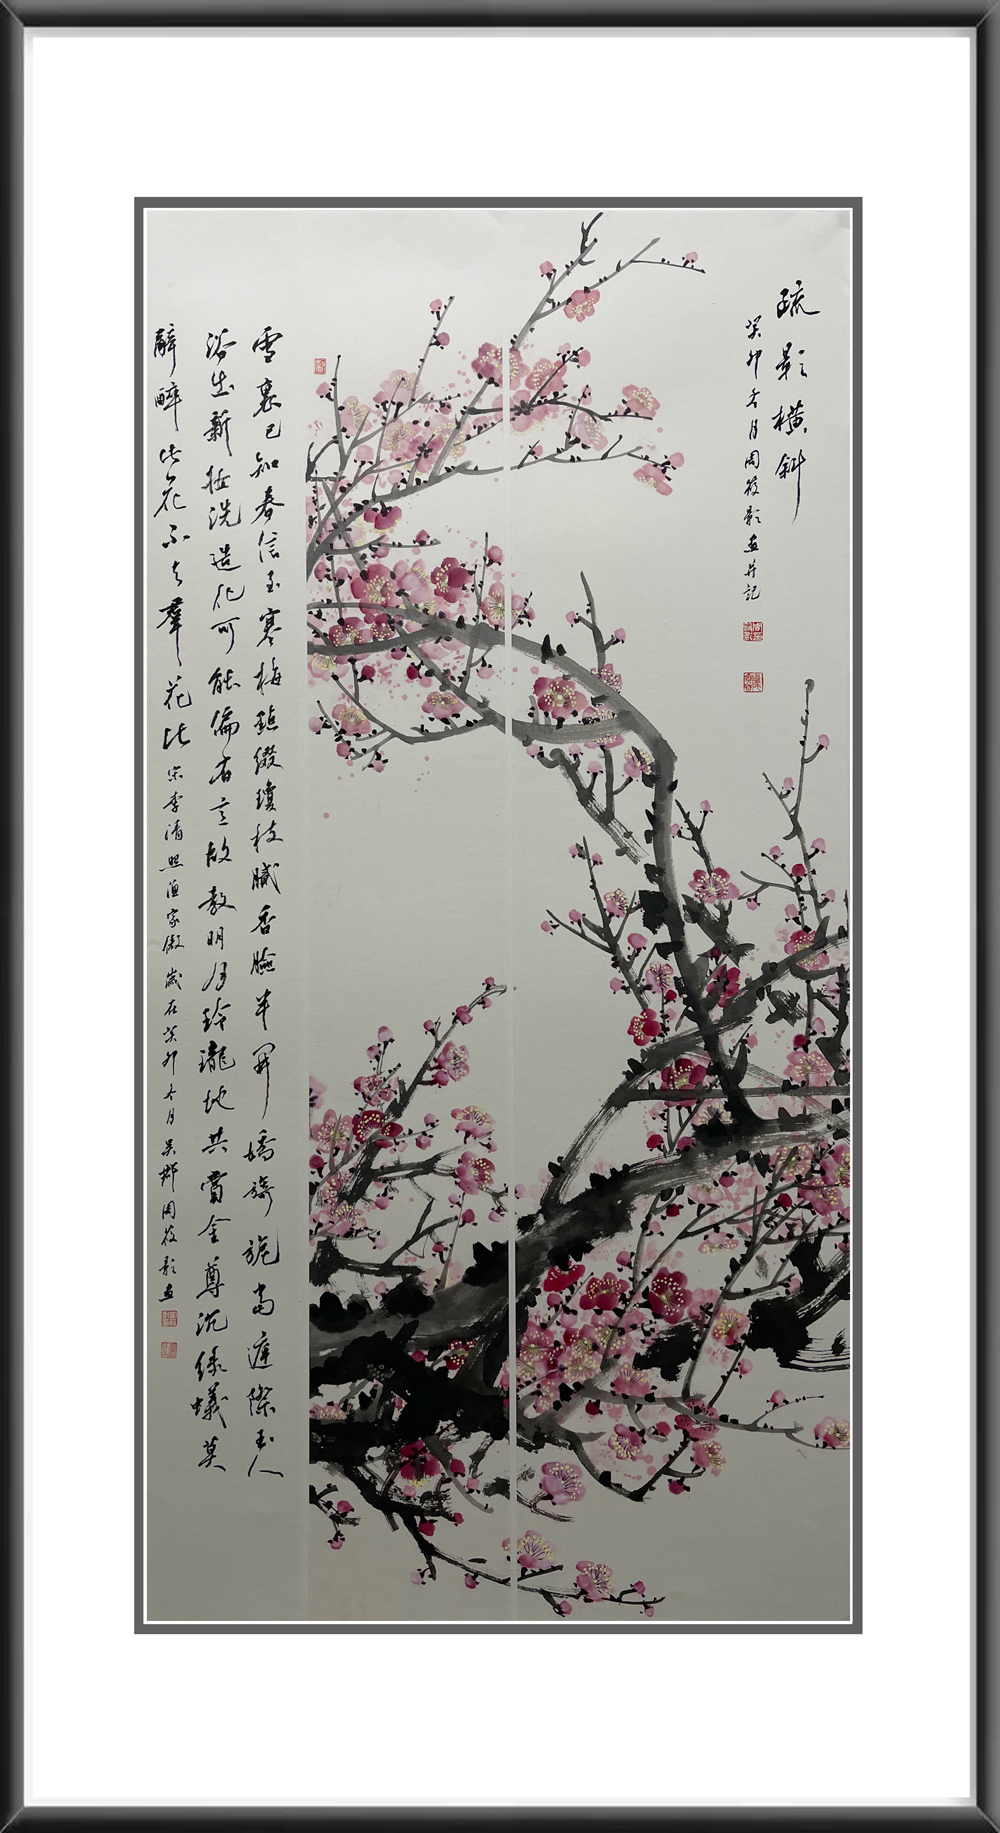 疏影橫斜
癸卯冬月周筱影画并記
雪裏已知春信至寒梅點綴瓊枝膩香臉半開嬌旖旎當庭際玉人
浴出新妝洗造化可能偏有意故教明月玲瓏地共賞金尊沉綠蟻莫
辭醉此花不与羣花比 宋李清照漁家傲歲在癸卯冬月吴郡周筱影画